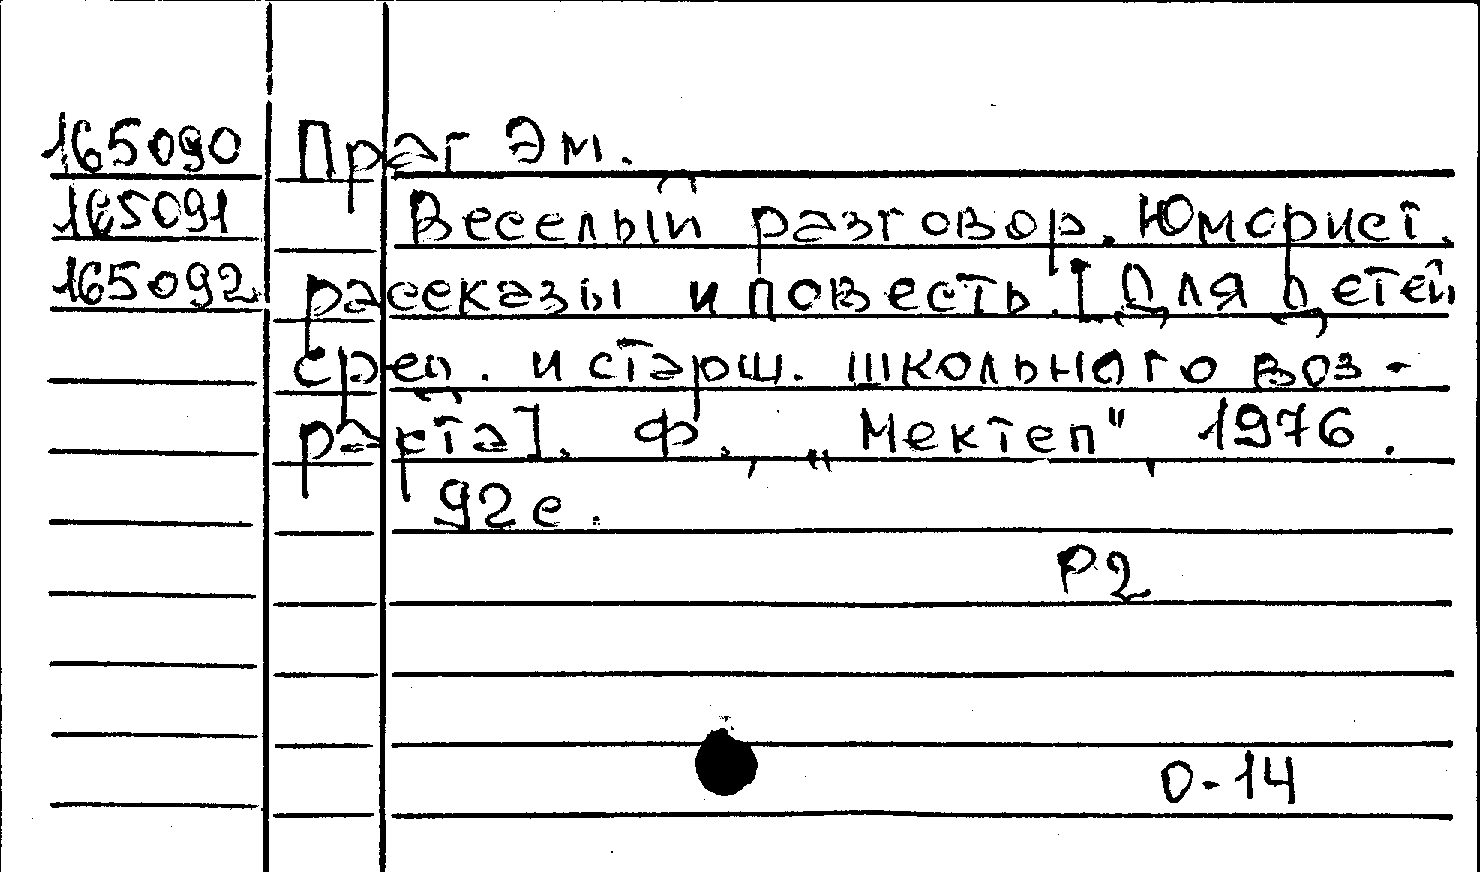 165090 Праг Эм.
165091 Веселый разговор. Юморист.
165092 рассказы и повесть. [Для детей
сред. и старш. школьного воз-
раста]. Ф., „Мектеп", 1976.
92 с.
Р2
0-14